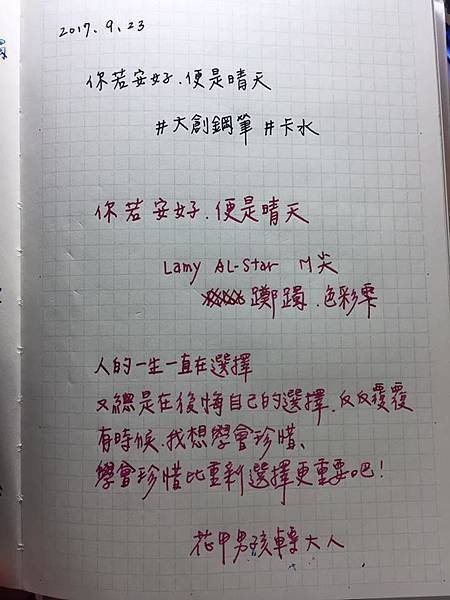 2017.9.23
你若安好.便是晴天
#大創鋼筆 #卡水
你若安好.便是晴天
Lamy AL-Star M尖
躑躅.色彩雫
人的一生一直在選擇
又總是在後悔自己的選擇.反反覆覆
有時候.我想學會珍惜、
學會珍惜比重新選擇更重要吧!
花甲男孩轉大人